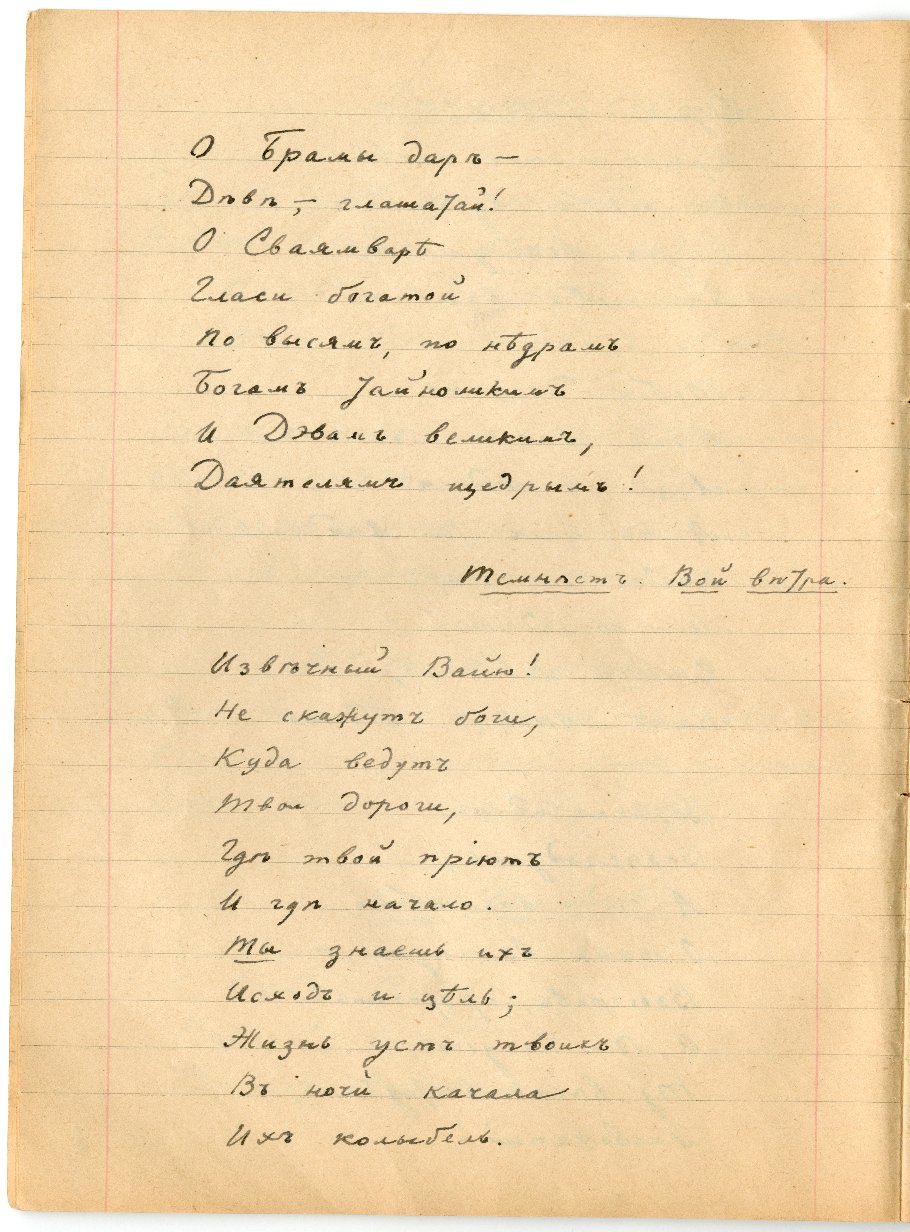 О Брамы даръ —
Дѣвѣ, — глашатай!
О Сваямварѣ
Гласи богатой
По высямъ, по нѣдрамъ
Богамъ тайноликимъ
И Дэвамъ великимъ,
Даятелямъ щедрымъ!
Темность. Вой вѣтра.
Извѣчный Вайю!
Не скажутъ боги,
Куда ведутъ
Твои дороги,
Гдѣ твой прiютъ
И гдѣ начало.
Ты знаешь ихъ
Исходъ и цѣль;
Жизнь устъ твоихъ
Въ ночи качала
Ихъ колыбель.